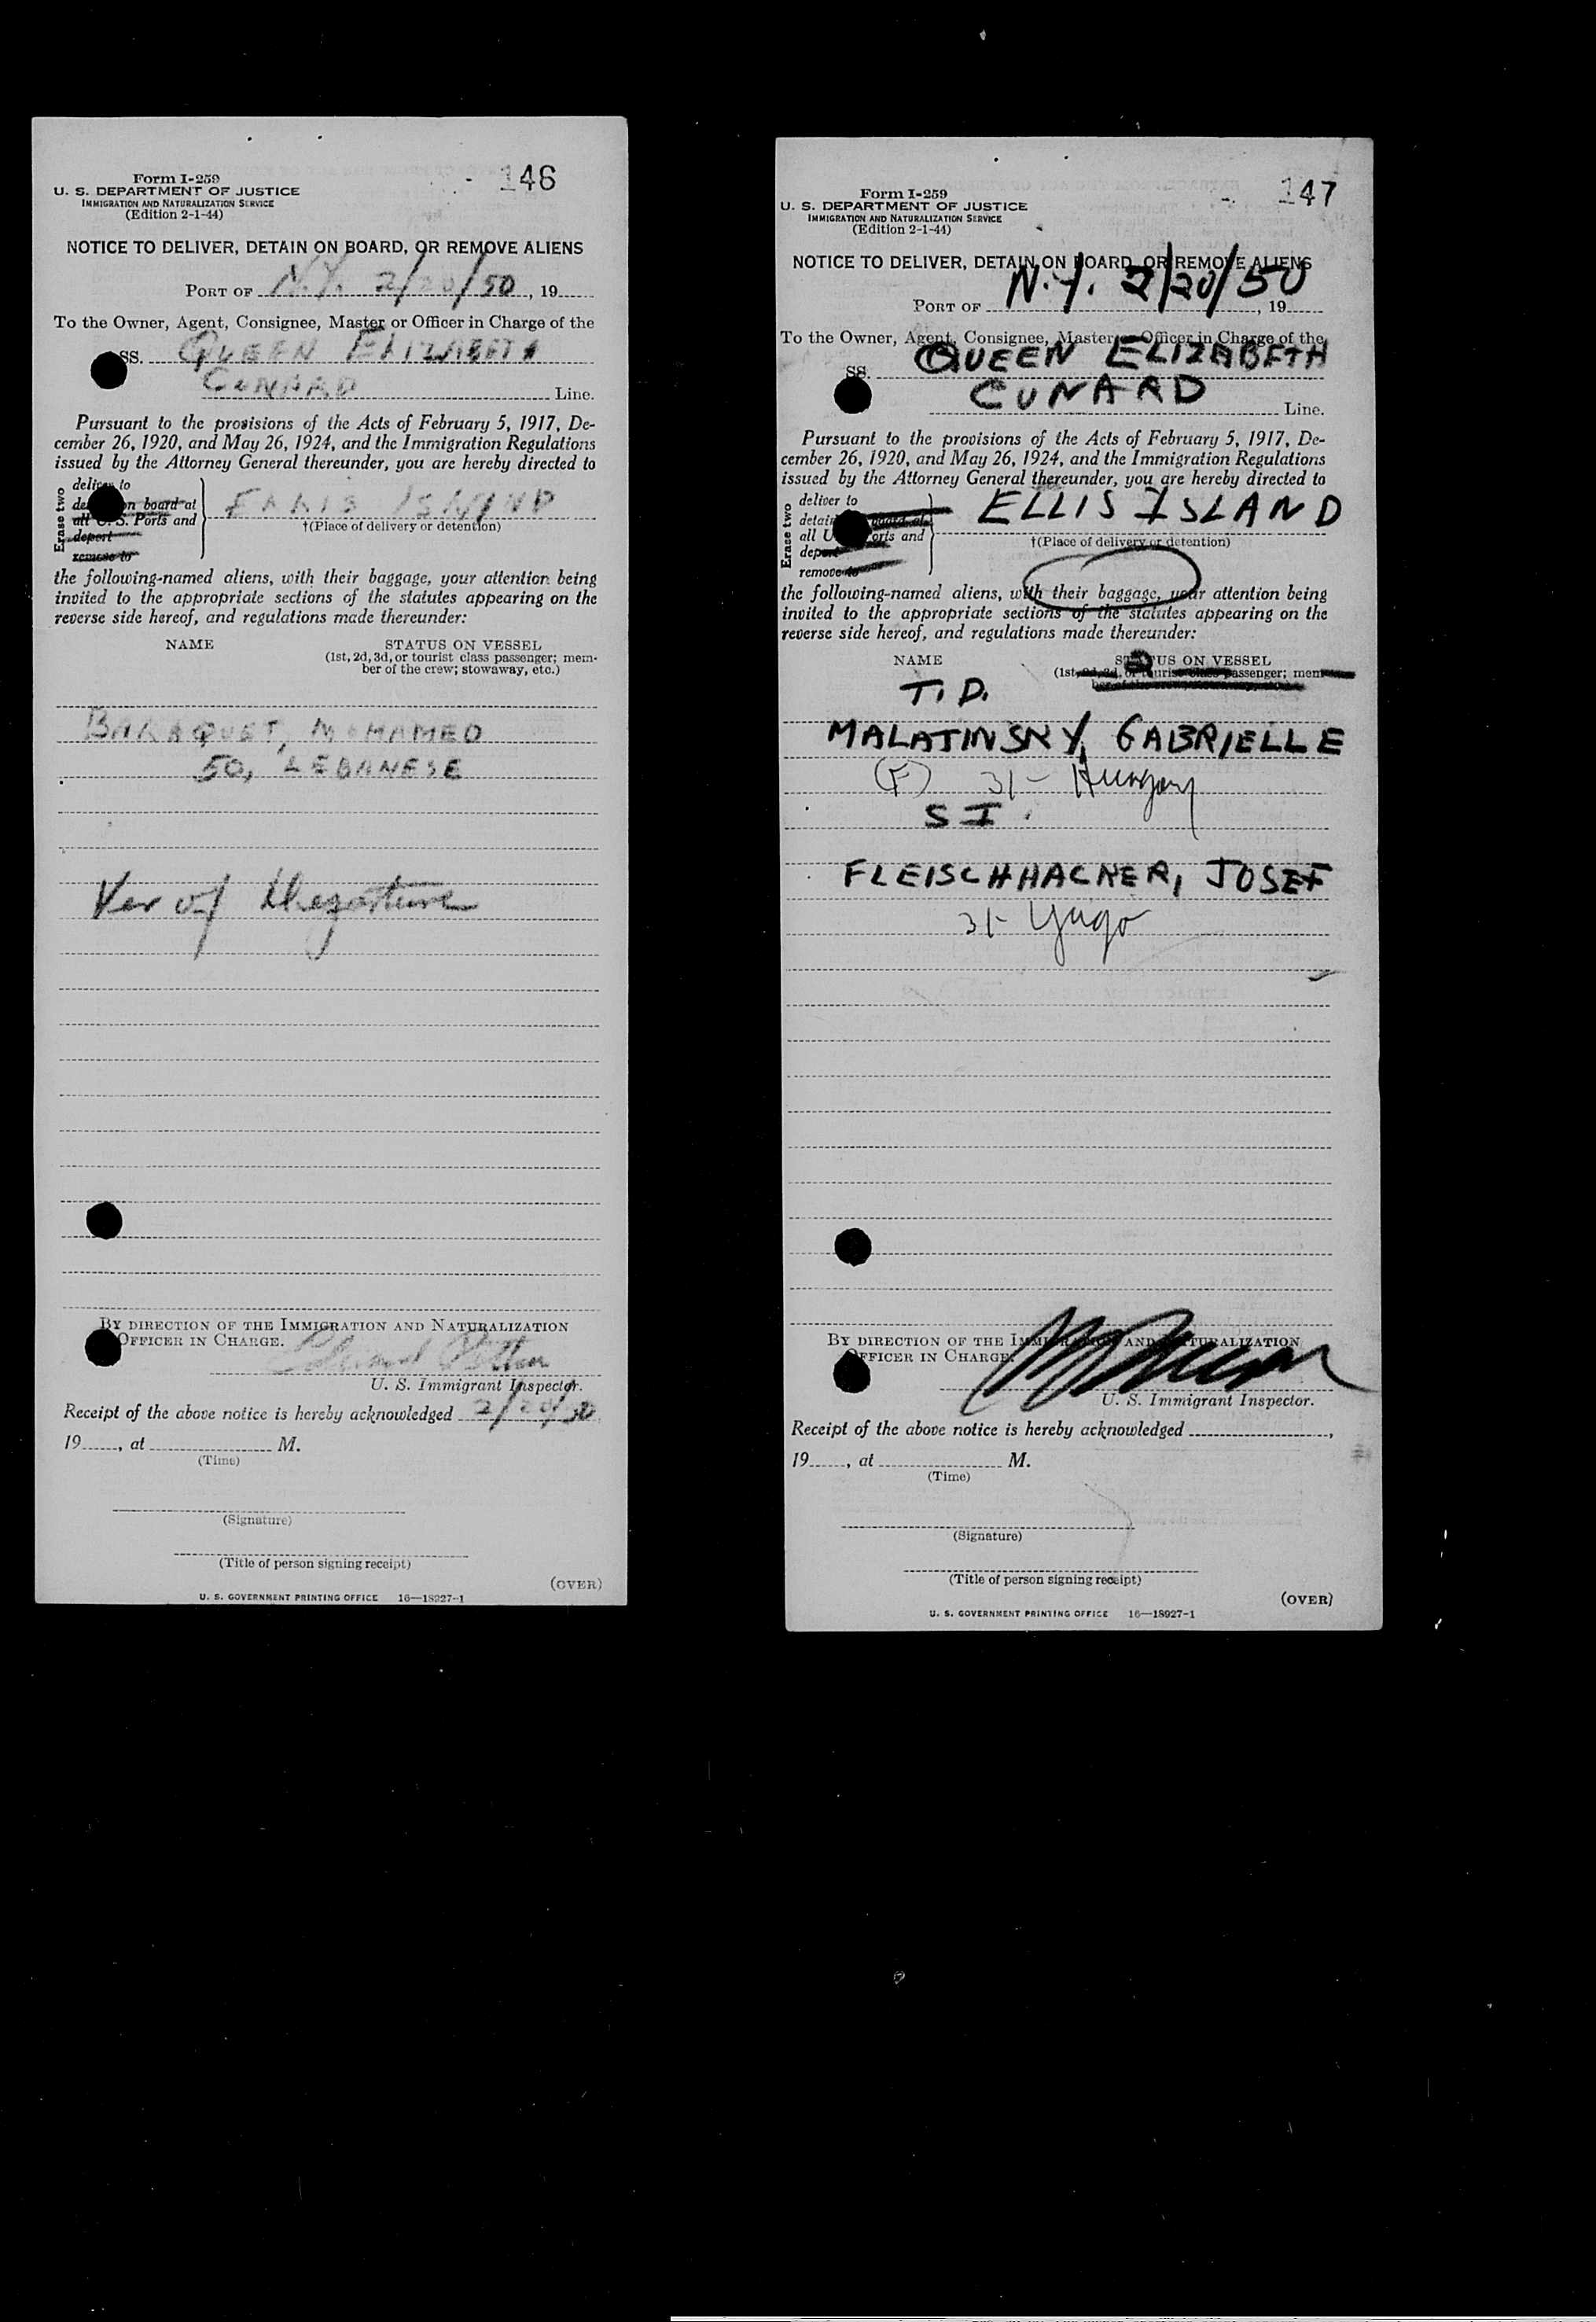 146
Form I-259
U. S. DEPARTMENT OF JUSTICE
IMMIGRATION AND NATURALIZATION SERVICE
(Edition 2-1-44)
NOTICE TO DELIVER, DETAIN ON BOARD, OR REMOVE ALIENS
PORT OF N.Y. 2/20/50, 19
To the Owner, Agent, Consignee, Master or Officer in Charge of the
SS. QUEEN ELIZABETH
CUNARD Line.
Pursuant to the provisions of the Acts of February 5, 1917, De-
cember 26, 1920, and May 26, 1924, and the Immigration Regulations
issued by the Attorney General thereunder, you are hereby directed to
Erase two
deliver to
on board at
all U. S. Ports and
deport
remove to
ELLIS ISLAND
†(Place of delivery or detention)
the following-named aliens, with their baggage, your attention being
invited to the appropriate sections of the statutes appearing on the
reverse side hereof, and regulations made thereunder:
NAME STATUS ON VESSEL
(1st, 2d, 3d, or tourist class passenger; mem-
ber of the crew; stowaway, etc.)
BARAQUET, MOHAMED
50, LEBANESE
Ver of departure
BY DIRECTION OF THE IMMIGRATION AND NATURALIZATION
OFFICER IN CHARGE.
U. S. Immigrant Inspector.
Receipt of the above notice is hereby acknowledged 2/20/50
19, at M.
(Time)
(Signature)
(Title of person signing receipt)
(OVER)
U. S. GOVERNMENT PRINTING OFFICE 16—18927-1
147
Form I-259
U. S. DEPARTMENT OF JUSTICE
IMMIGRATION AND NATURALIZATION SERVICE
(Edition 2-1-44)
NOTICE TO DELIVER, DETAIN ON BOARD, OR REMOVE ALIENS
PORT OF N.Y. 2/20/50, 19
To the Owner, Agent, Consignee, Master or Officer in Charge of the
SS. QUEEN ELIZABETH
CUNARD Line.
Pursuant to the provisions of the Acts of February 5, 1917, De-
cember 26, 1920, and May 26, 1924, and the Immigration Regulations
issued by the Attorney General thereunder, you are hereby directed to
Erase two
deliver to
detain board at
all U Ports and
deport
remove to
ELLIS ISLAND
†(Place of delivery or detention)
the following-named aliens, with their baggage, your attention being
invited to the appropriate sections of the statutes appearing on the
reverse side hereof, and regulations made thereunder:
NAME STATUS ON VESSEL
2
(1st, 2d, 3d, or tourist class passenger; mem-
ber of the crew; stowaway, etc.)
T. D.
MALATINSKY, GABRIELLE
(F) 31- Hungary
S I.
FLEISCHHACKER, JOSEF
31- Yugo
BY DIRECTION OF THE IMMIGRATION AND NATURALIZATION
OFFICER IN CHARGE.
U. S. Immigrant Inspector.
Receipt of the above notice is hereby acknowledged ,
19, at M.
(Time)
(Signature)
(Title of person signing receipt)
(OVER)
U. S. GOVERNMENT PRINTING OFFICE 16—18927-1